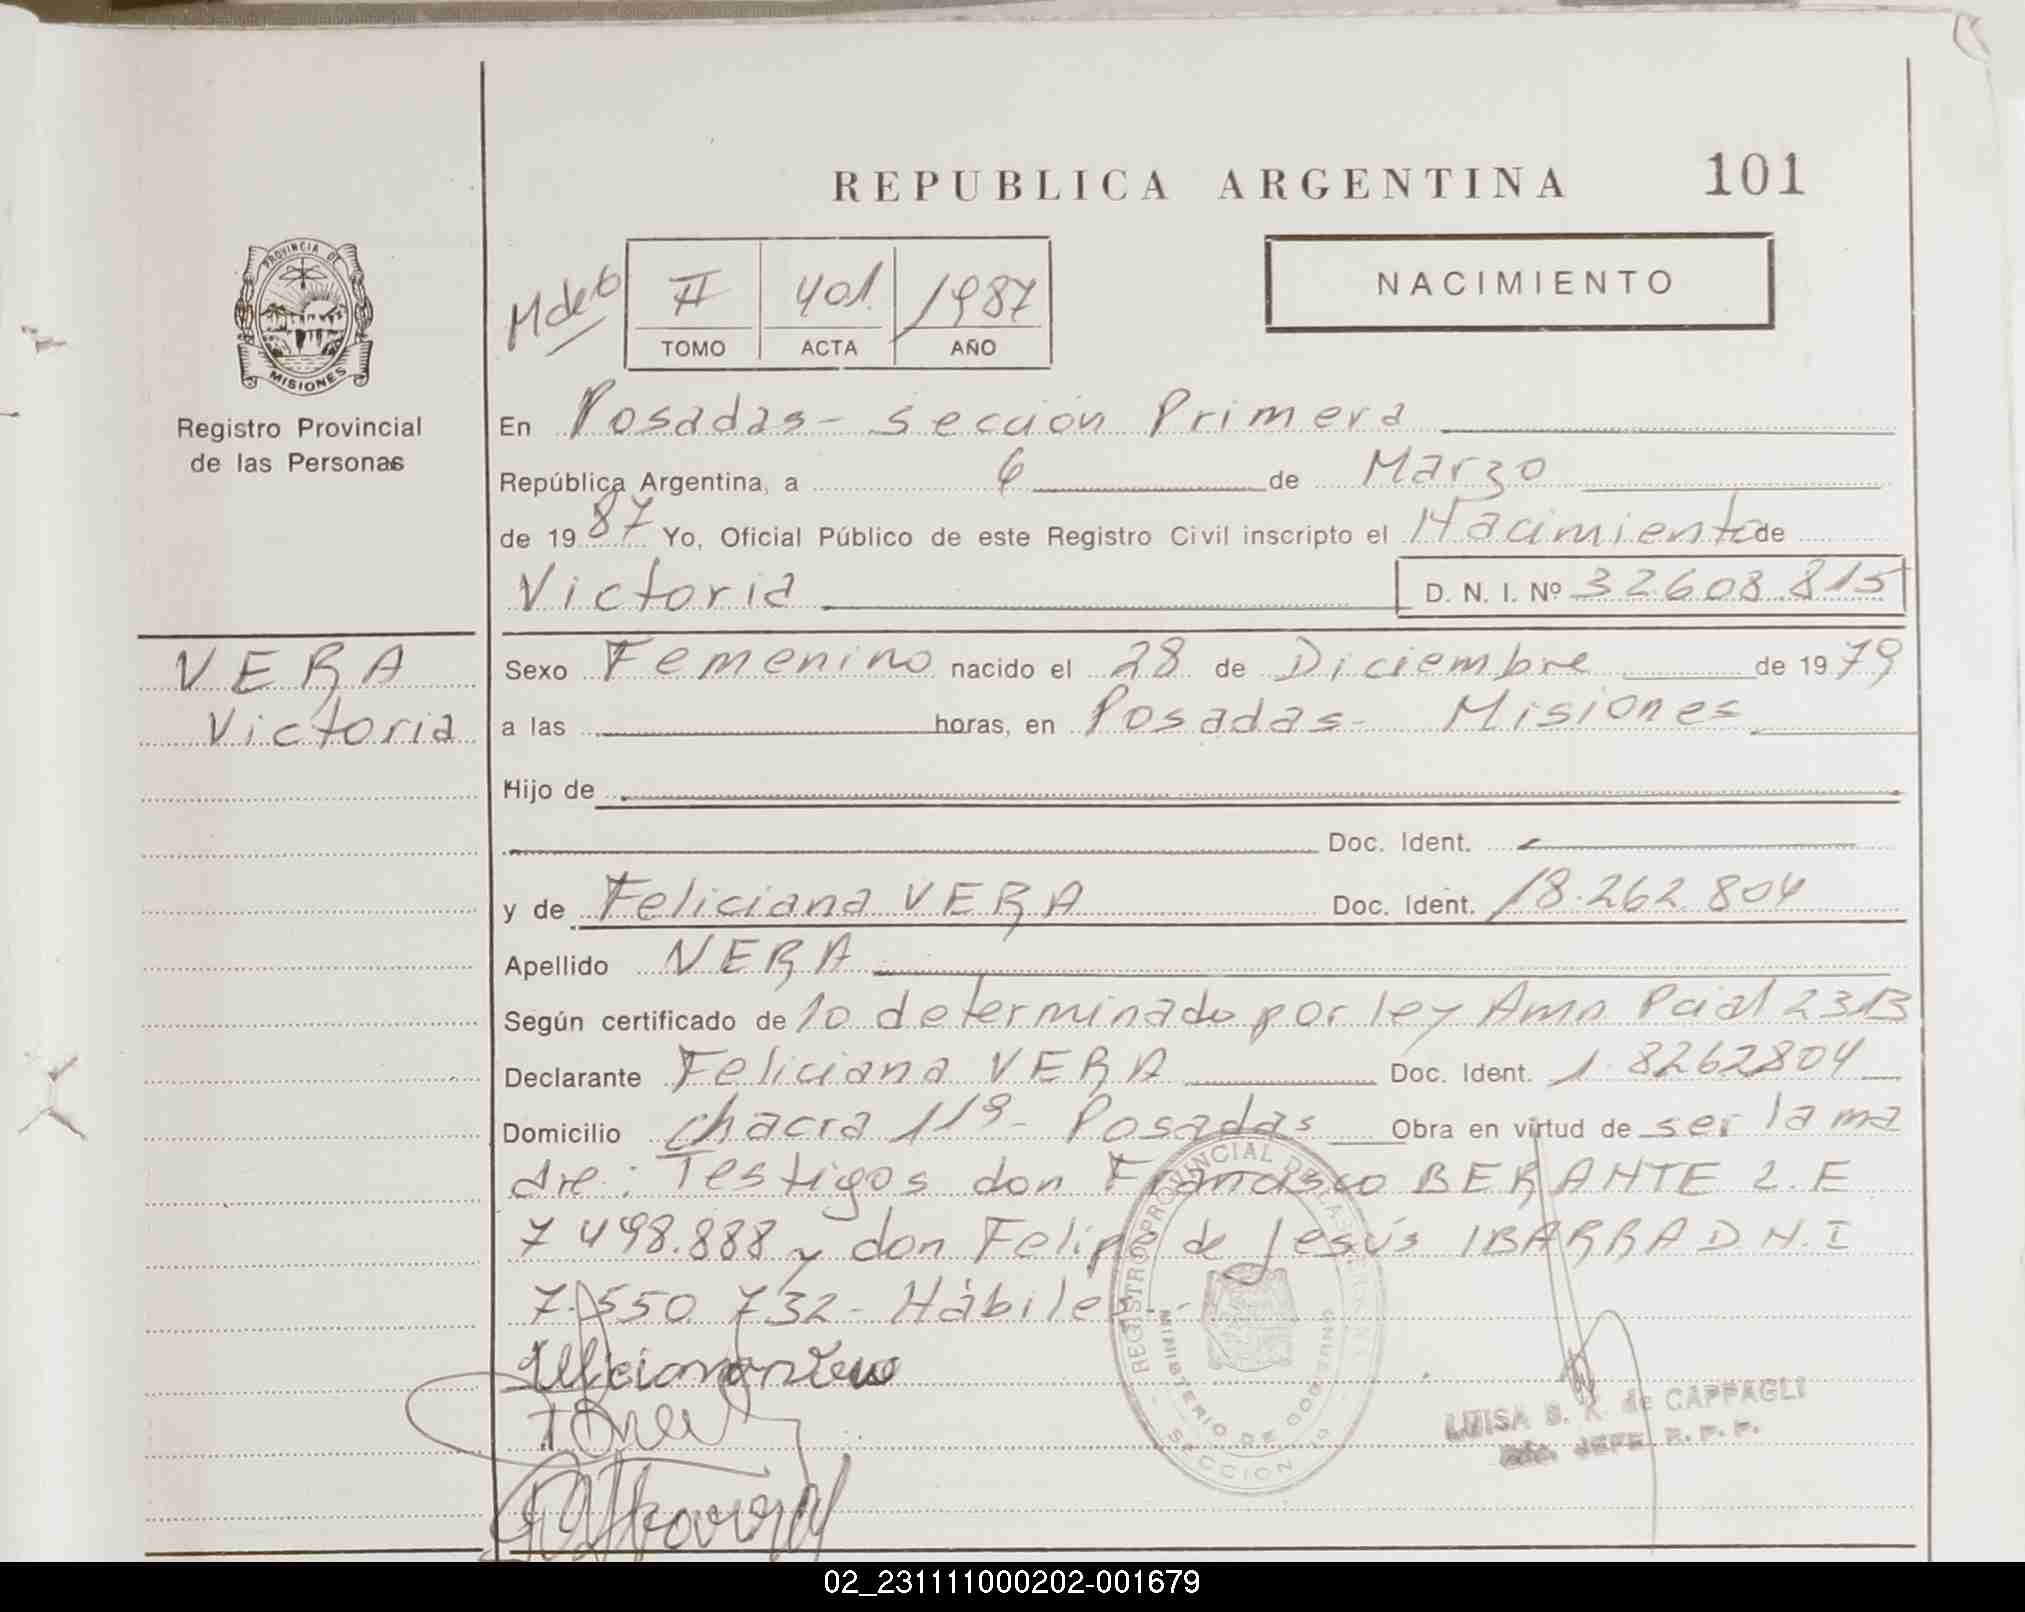 REPUBLICA ARGENTINA 101
PROVINCIA DE
MISIONES
Registro Provincial
de las Personas
II 401 1987
TOMO ACTA AÑO
NACIMIENTO
En Posadas - Sección Primera
República Argentina, a 6 de Marzo
de 1987 Yo, Oficial Público de este Registro Civil inscripto el Nacimiento de
Victoria D. N. I. Nº 32608.815
VERA
Victoria
Sexo Femenino nacido el 28 de Diciembre de 1979
a las horas, en Posadas - Misiones
Hijo de
Doc. Ident.
y de Feliciana VERA Doc. Ident. 18.262.804
Apellido VERA
Según certificado de lo determinado por ley Amn Pcial 2313
Declarante Feliciana VERA Doc. Ident. 18262804
Domicilio chacra 119 - Posadas Obra en virtud de ser la ma
dre: Testigos don Francisco BERANTE L.E
7498.888 y don Felipe de Jesús IBARRA D.N.I
7.550.732 - Hábiles.-
REGISTRO PROVINCIAL DE LAS PERSONAS
MINISTERIO DE GOBIERNO
SECCION 1º
LUISA S. K. de CAPPAGLI
JEFE R. P. P.
02_231111000202-001679